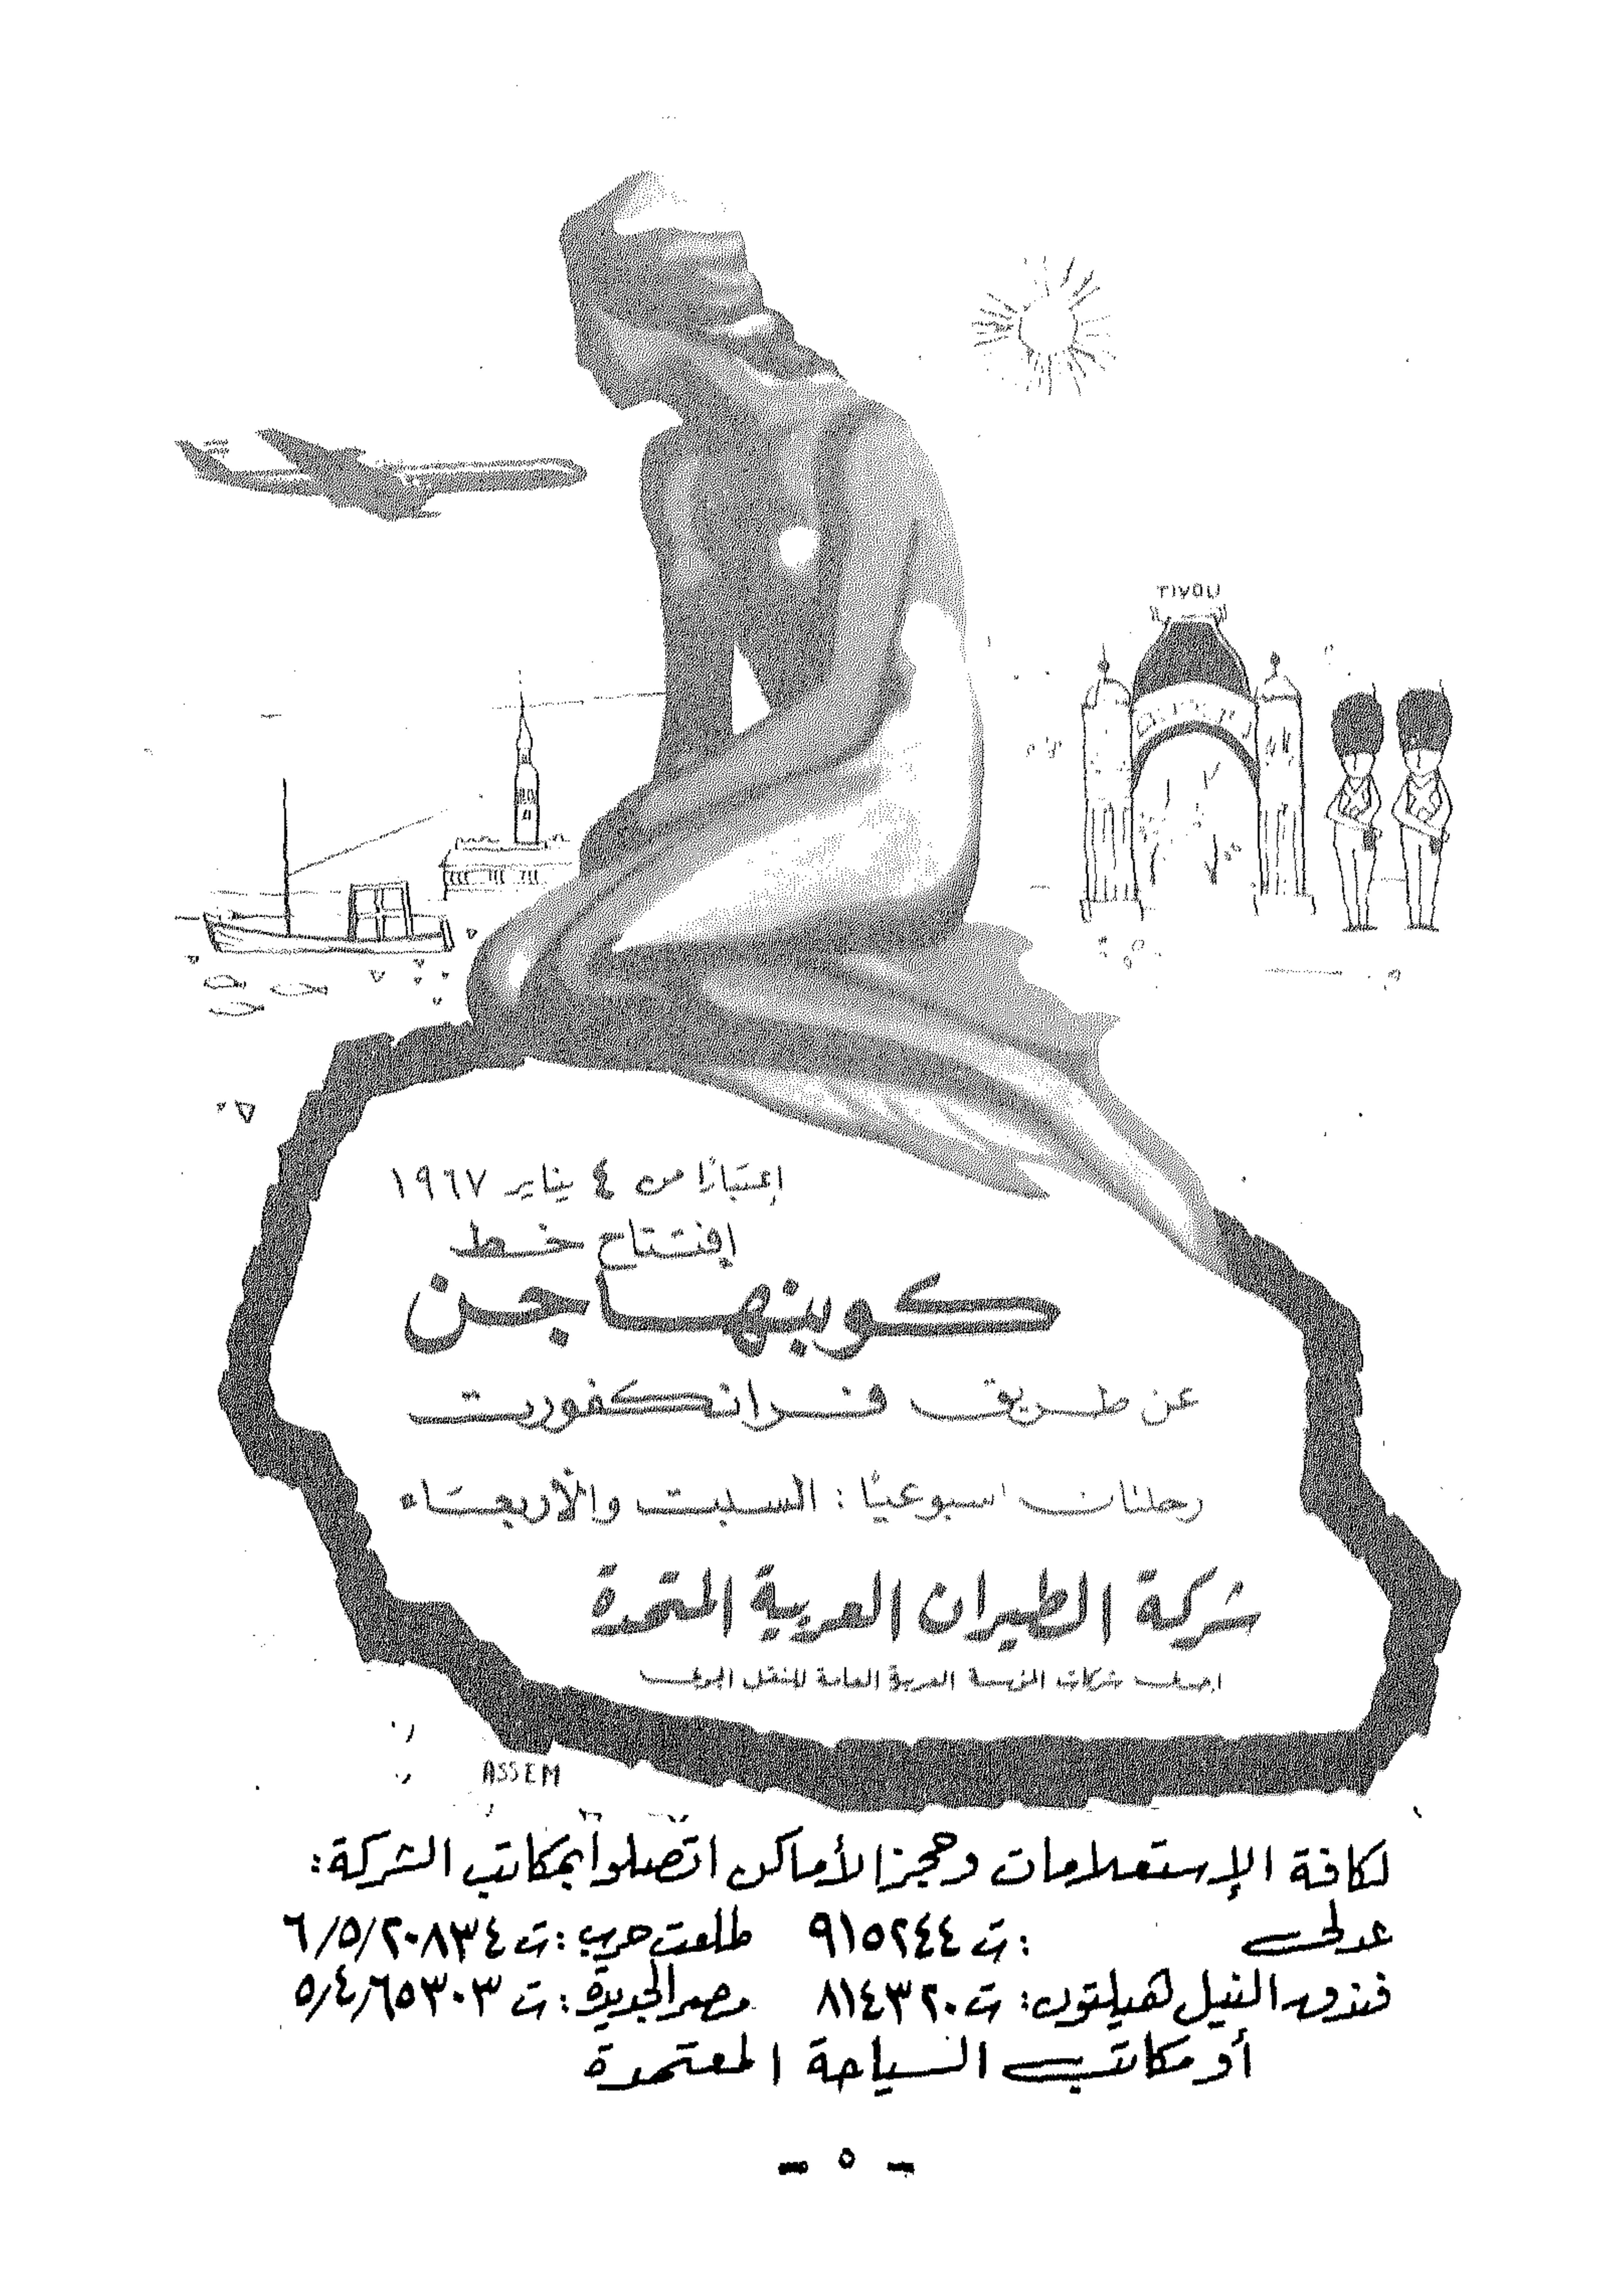 TIVOLI
إعتبارًا من ٤ يناير ١٩٦٧
إفتتاح خط
كوبنهاجن
عن طريق فرانكفورت
رحلتان اسبوعيًا : السبت والأربعاء
شركة الطيران العربية المتحدة
احدى شركات المؤسسة العربية العامة للنقل الجوى
ASSEM
لكافة الإستعلامات وحجز الأماكن اتصلوا بمكاتب الشركة :
عدلى : ت ٩١٥٢٤٤ طلعت حرب : ت ٢٠٨٣٤/٥/٦
فندق النيل هيلتون : ت ٨١٤٣٢٠ مصر الجديدة : ت ٦٥٣٠٣/٤/٥
أو مكاتب السياحة المعتمدة
- ٥ -